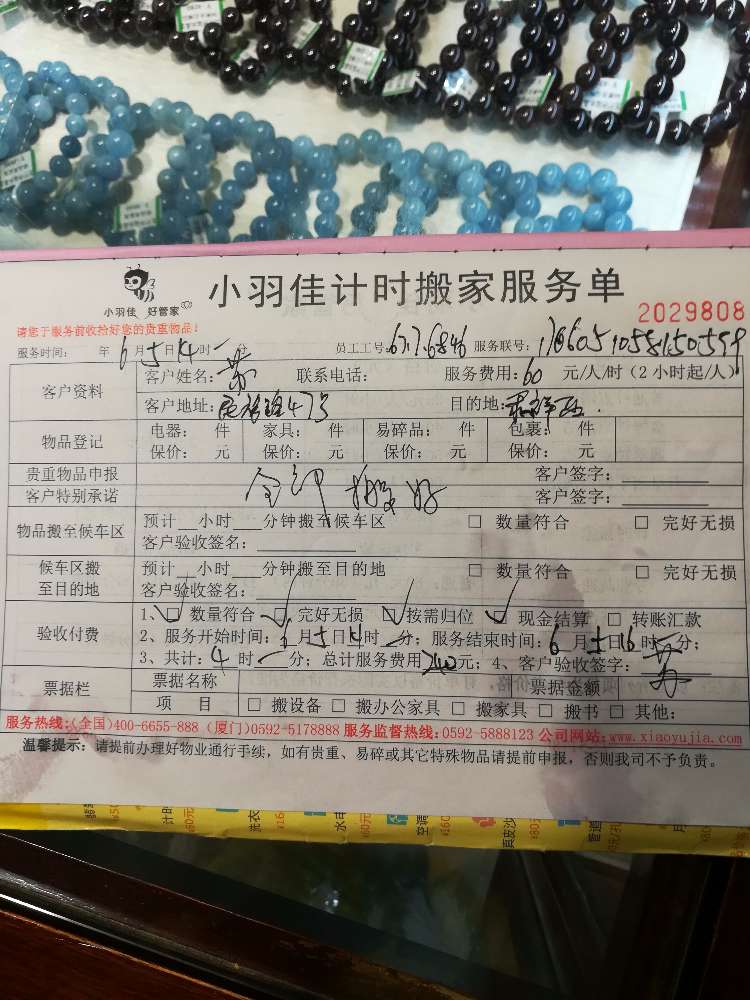 小羽佳计时搬家服务单
小羽佳 好管家
2029808
请您于服务前收拾好您的贵重物品!
服务时间: 年 6 月 5 日 14 时 - 分 员工工号: 服务联号:
客户资料 客户姓名:苏 联系电话: 服务费用:60 元/人/时(2小时起/人)
客户地址: 目的地:
物品登记 电器: 件 家具: 件 易碎品: 件 包裹: 件
保价: 元 保价: 元 保价: 元 保价: 元
贵重物品申报 客户签字:
客户特别承诺 客户签字:
物品搬至候车区 预计 小时 分钟搬至候车区 □ 数量符合 □ 完好无损
客户验收签名:
候车区搬至目的地 预计 小时 分钟搬至目的地 □ 数量符合 □ 完好无损
客户验收签名:
验收付费 1、☑ 数量符合 ☑ 完好无损 ☑ 按需归位 ☑ 现金结算 □ 转账汇款
2、服务开始时间:6 月 5 日 14 时 - 分; 服务结束时间:6 月 5 日 16 时 - 分;
3、共计:4 时 - 分; 总计服务费用 240 元; 4、客户验收签字:苏
票据栏 票据名称 票据金额
项 目 □ 搬设备 □ 搬办公家具 □ 搬家具 □ 搬书 □ 其他:
服务热线:(全国)400-6655-888 (厦门)0592-5178888 服务监督热线:0592-5888123 公司网站:www.xiaoyujia.com
温馨提示:请提前办理好物业通行手续,如有贵重、易碎或其它特殊物品请提前申报,否则我司不予负责。